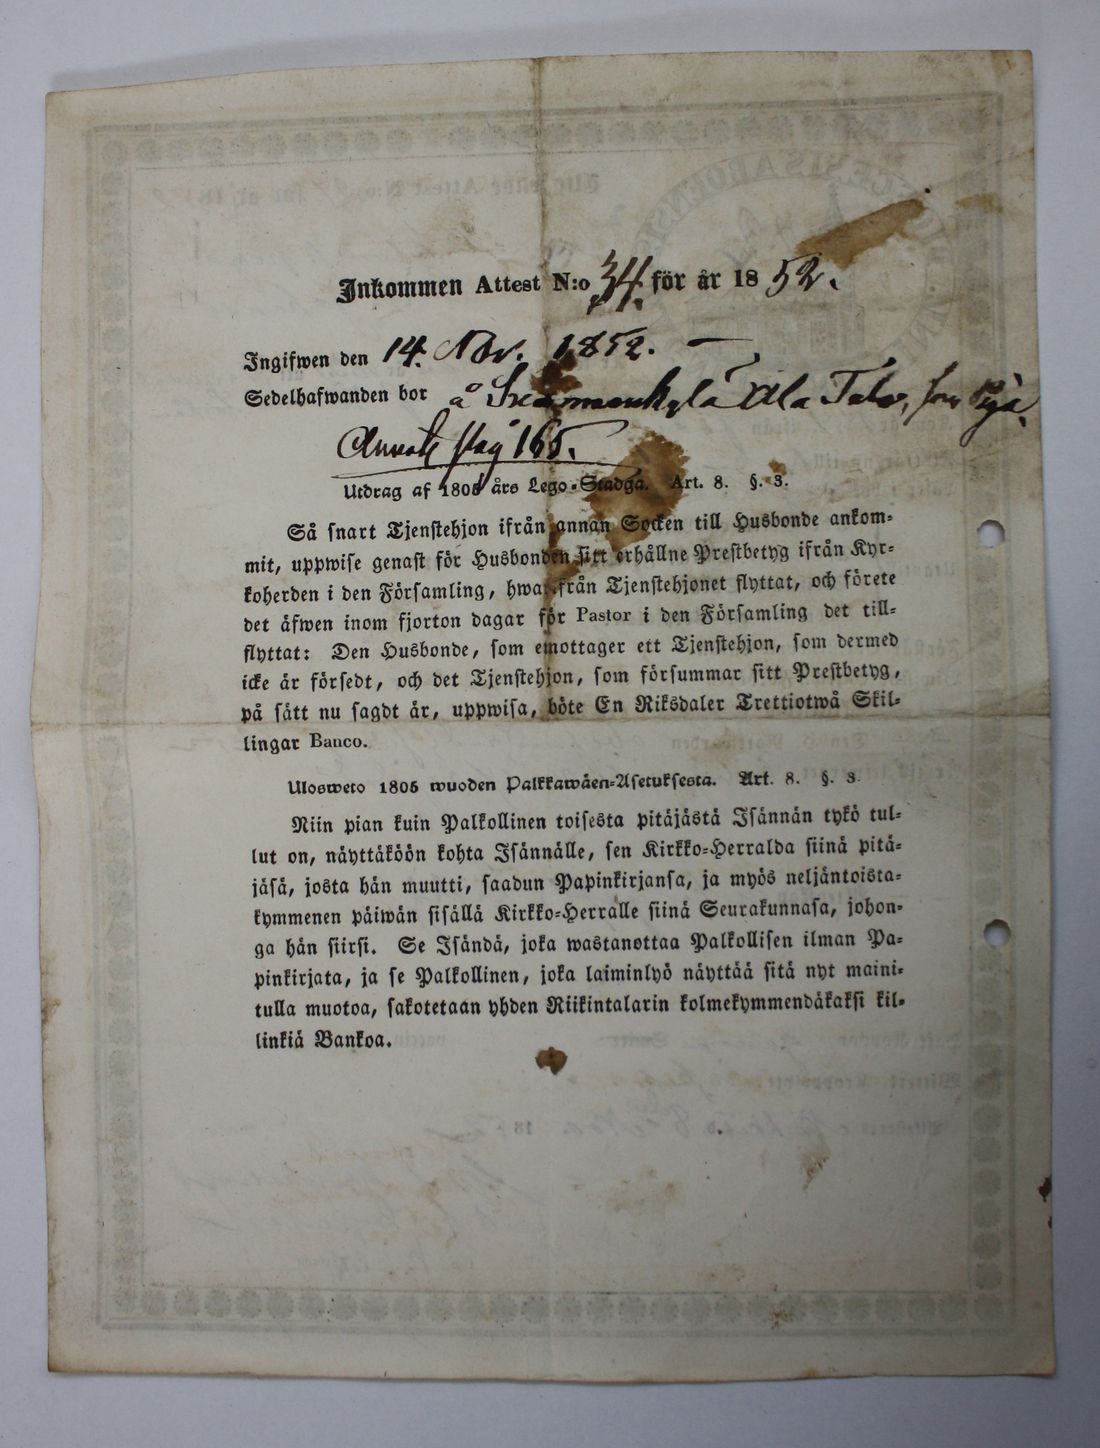 Inkommen Attest N:o 34. för år 1852.
Ingifwen den 14. Nov. 1852. —
Sedelhafwanden bor å Ala Talo, som Piga.
Annot. Pag 165.
Utdrag af 1805 års Lego-Stadga. Art. 8. §. 3.
Så snart Tjenstehjon ifrån annan Socken till Husbonde ankom-
mit, uppwise genast för Husbonden sitt erhållne Prestbetyg ifrån Kyr-
koherden i den Församling, hwarifrån Tjenstehjonet flyttat, och förete
det äfwen inom fjorton dagar för Pastor i den Församling det till-
flyttat: Den Husbonde, som emottager ett Tjenstehjon, som dermed
icke är försedt, och det Tjenstehjon, som försummar sitt Prestbetyg,
på sätt nu sagdt är, uppwisa, böte En Riksdaler Trettiotwå Skil-
lingar Banco.
Ulosweto 1805 wuoden Palkkawäen-Asetuksesta. Art. 8. §. 3.
Niin pian kuin Palkollinen toisesta pitäjästä Isännän tykö tul-
lut on, näyttäköön kohta Isännälle, sen Kirkko-Herralda siinä pitä-
jäsä, josta hän muutti, saadun Papinkirjansa, ja myös neljäntoista-
kymmenen päiwän sisällä Kirkko-Herralle siinä Seurakunnasa, johon-
ga hän siirsi. Se Isändä, joka wastanottaa Palkollisen ilman Pa-
pinkirjata, ja se Palkollinen, joka laiminlyö näyttää sitä nyt maini-
tulla muotoa, sakotetaan yhden Riikintalarin kolmekymmendäkaksi kil-
linkiä Bankoa.